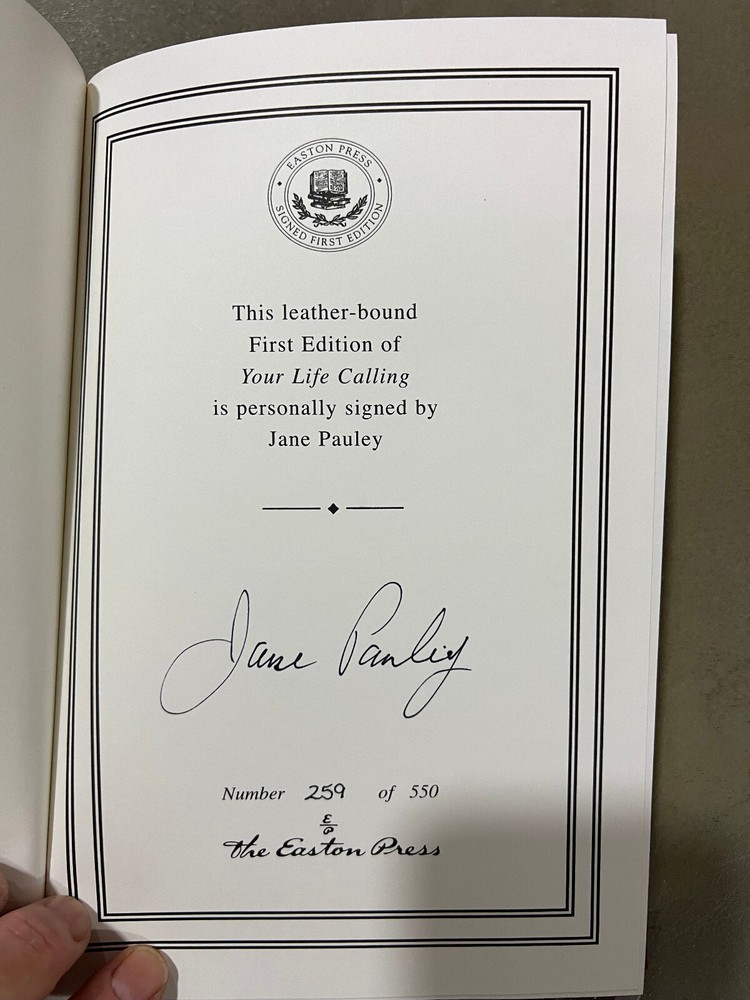 EASTON PRESS
SIGNED FIRST EDITION
This leather-bound
First Edition of
Your Life Calling
is personally signed by
Jane Pauley
Jane Pauley
Number 259 of 550
E
P
The Easton Press